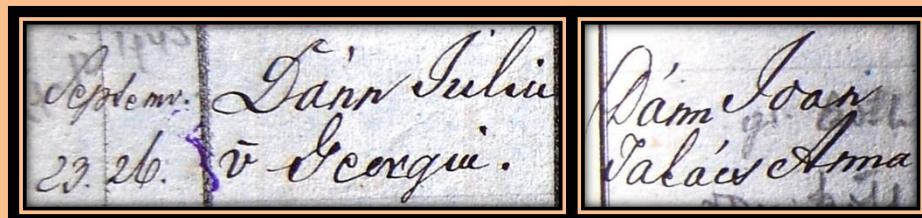 Septemv.
23. 26.
Dánn Iuliu
v̄ Georgiu.
Dánn Ioan
Takács Anna